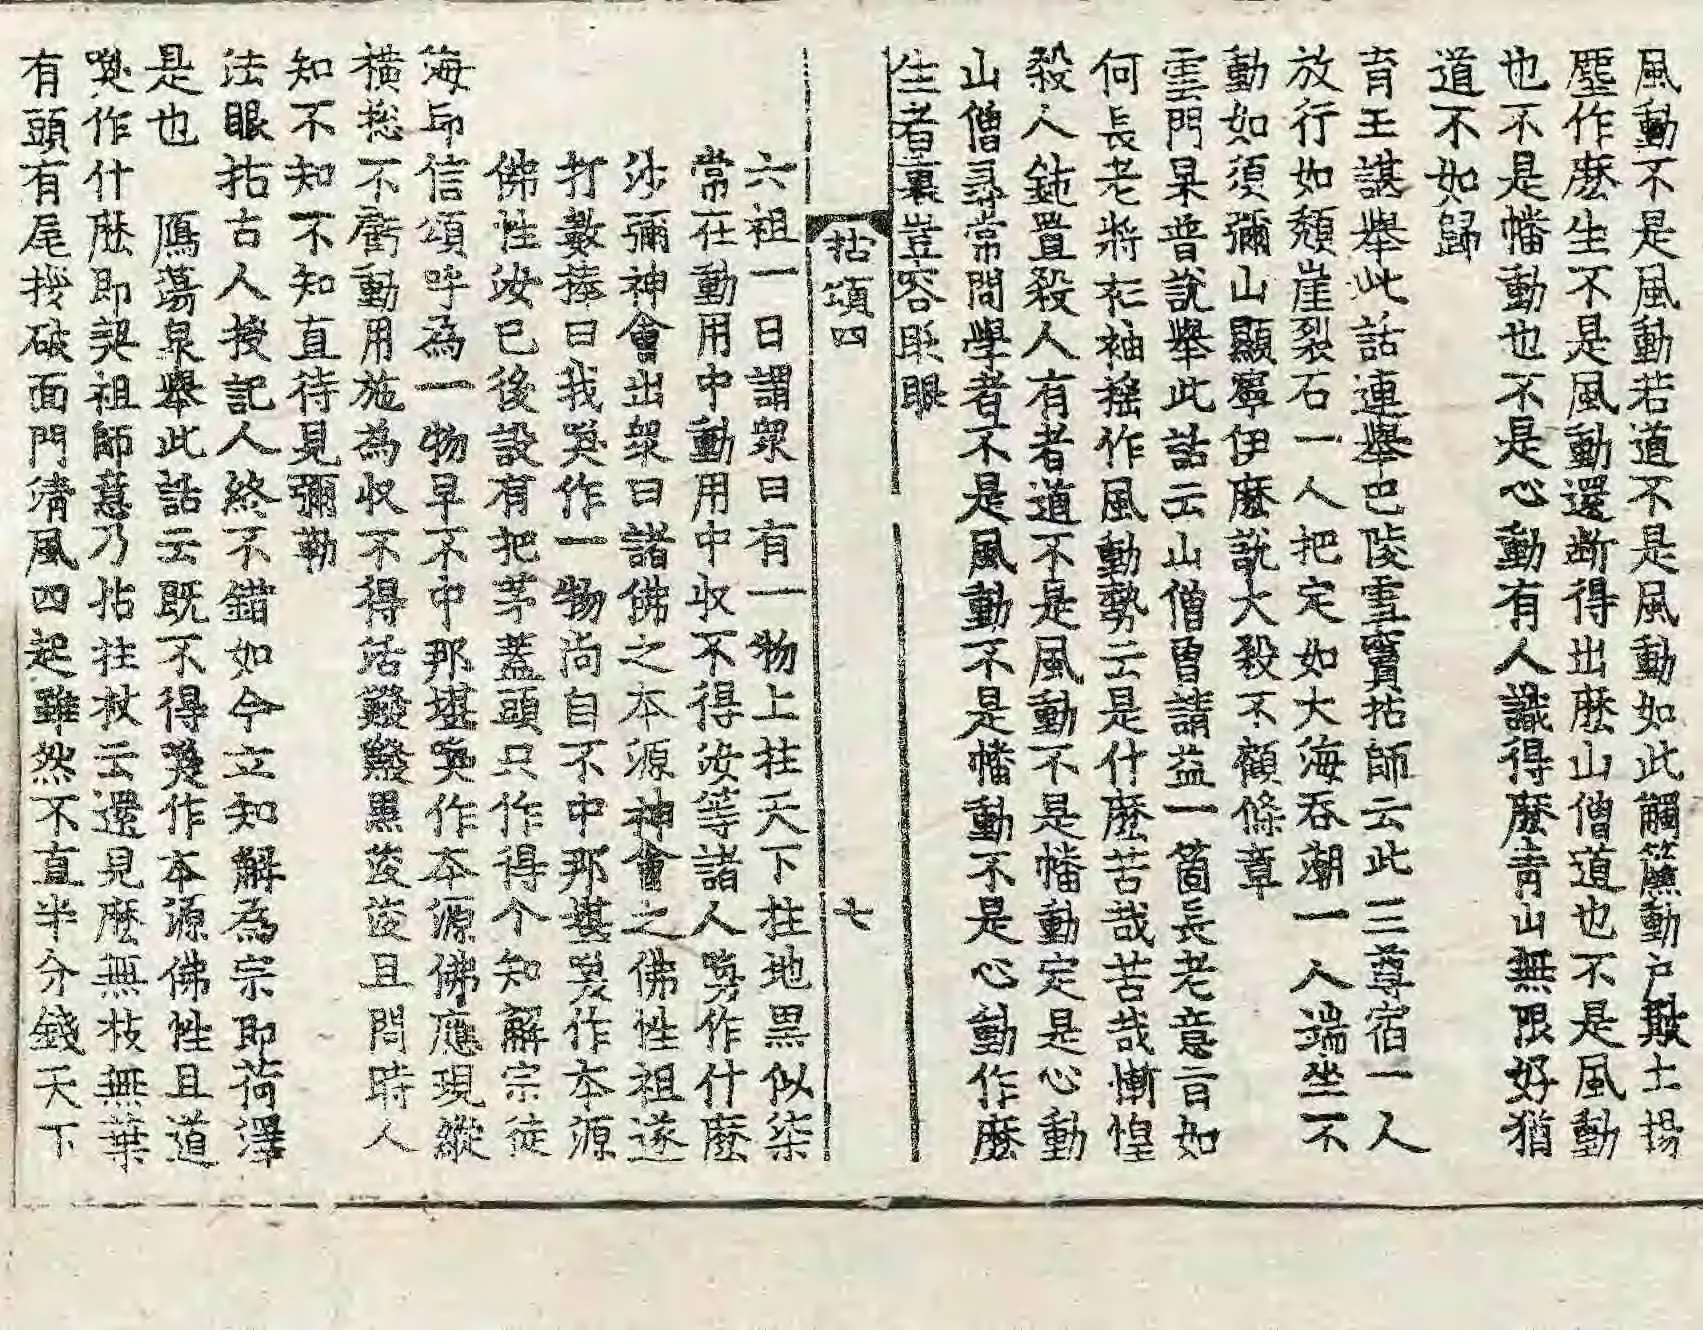 風動不是風動若道不是風動如此觸簾動戶撒土揚
塵作麽生不是風動還断得出麽山僧道也不是風動
也不是幡動也不是心動有人識得麽青山無限好猶
道不如歸
育王諶舉此話連舉巴陵雪竇拈師云此三尊宿一人
放行如頽崖裂石一人把定如大海吞潮一人端坐不
動如須彌山顯寧伊麽說大殺不顧條章
雲門杲普說舉此話云山僧曽請益一箇長老意旨如
何長老將衫袖搖作風動勢云是什麽苦哉苦哉慚惶
殺人鈍置殺人有者道不是風動不是幡動定是心動
山僧尋常問學者不是風動不是幡動不是心動作麽
生者裏豈容眨眼
拈頌四
七
六祖一日謂衆曰有一物上拄天下拄地黒似柒
常在動用中動用中収不得汝等諸人喚作什麽
沙彌神會出衆曰諸佛之本源神會之佛性祖遂
打數捧曰我喚作一物尚自不中那堪喚作本源
佛性汝已後設有把茅蓋頭只作得个知解宗徒
海印信頌呼為一物早不中那堪喚作本源佛應現縱
橫捴不虧動用施為収不得活鱍鱍黒䓇䓇且問時人
知不知不知直待見彌勒
法眼拈古人授記人終不錯如今立知解為宗即荷澤
是也　鴈蕩泉舉此話云既不得喚作本源佛性且道
喚作什麽即契祖師意乃拈拄杖云還見麽無枝無葉
有頭有尾㧞破面門清風四起雖然不直半分錢天下